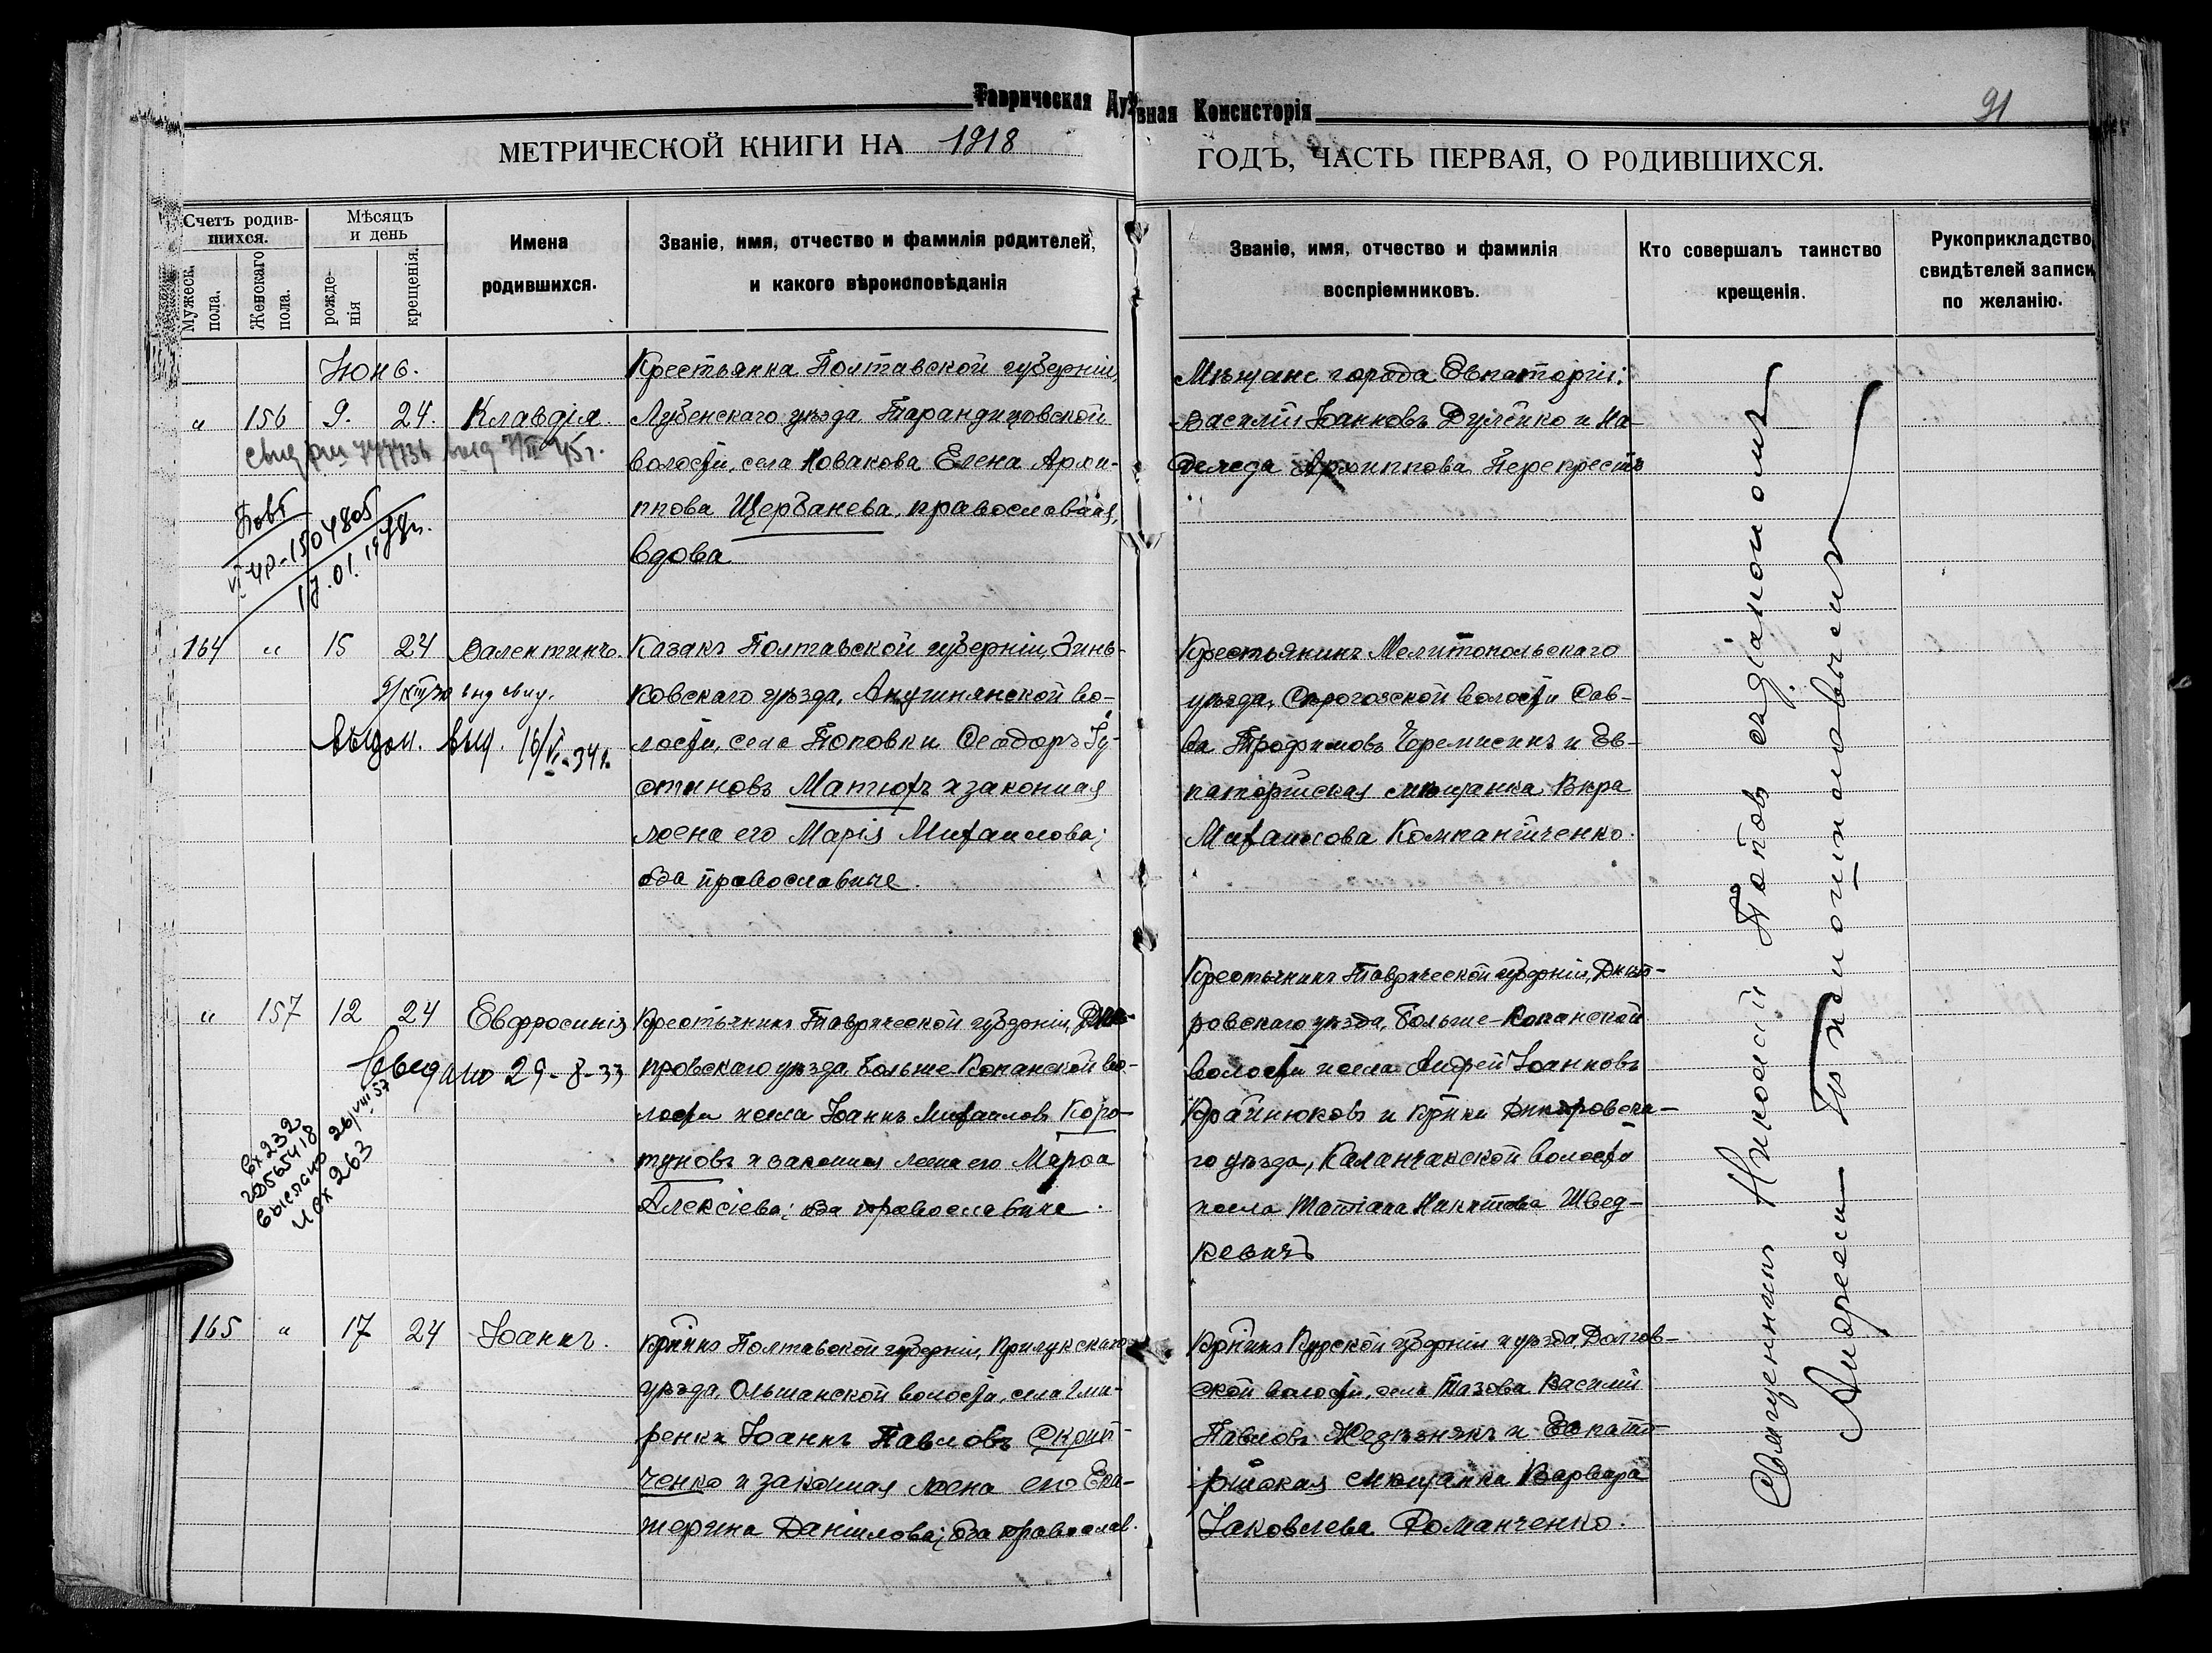 Таврическая Духовная Консисторія
91
МЕТРИЧЕСКОЙ КНИГИ НА 1918
ГОДЪ, ЧАСТЬ ПЕРВАЯ, О РОДИВШИХСЯ.
Счетъ родившихся.
Мужеск. пола.
Женскаго пола.
Мѣсяцъ и день
рожденія
крещенія.
Имена родившихся.
Званіе, имя, отчество и фамилія родителей,
и какого вѣроисповѣданія
Званіе, имя, отчество и фамилія
воспріемниковъ.
Кто совершалъ таинство
крещенія.
Рукоприкладство
свидѣтелей записи
по желанію.
Іюнь.
" 156 9. 24. Клавдія.
Крестьянка Полтавской губерніи,
Лубенскаго уѣзда Тарандинцовской
волости, села Новакова Елена Архи-
ппова Щербанева, православная,
вдова
Мѣщане города Евпаторіи:
Василій Іоанновъ Дуленко и На-
дежда Архиппова Перекрестъ
Повт
17.01.1978г.
164 " 15 24 Валентинъ.
Казакъ Полтавской губерніи, Зинь-
ковскаго уѣзда, волости, села Поповки Ѳеодоръ Іу-
стиновъ Матюхъ и законная
жена его Марія Михаилова;
оба православные.
выд. 16/VI-34г.
Крестьянинъ Мелитопольскаго
уѣзда, Сѣрогозской волости Сав-
ва Трофимовъ Черемисинъ и Ев-
паторійская мѣщанка Вѣра
Михаилова Компанійченко.
" 157 12 24 Евфросинія
Крестьянинъ Таврической губерніи, Днѣ-
провскаго уѣзда Больше-Копанской во-
лости и села Іоаннъ Михаиловъ Коро-
туновъ и законная жена его Марѳа
Алексіева; оба православные.
Выдано 29-8-33
вх 232
выслано 26/VIII 57
исх 263
Крестьянинъ Таврической губерніи, Днѣп-
ровскаго уѣзда, Больше-Копанской
волости и села Андрей Іоанновъ
Крайнюковъ и кр-нка Днѣпровска-
го уѣзда, Каланчакской волости
и села Татіана Никитова Швед-
кевичъ
165 " 17 24 Іоаннъ.
Кр-нинъ Полтавской губерніи, Прилукскаго
уѣзда, Ольшанской волости, села Гми-
ренки Іоаннъ Павловъ Скрип-
ченко и законная жена его Ека-
терина Даніилова; оба православ.
Кр-нинъ Курской губерніи и уѣзда, Долгов-
ской волости, села Тазова Василій
Павловъ Желѣзнякъ и Евпато-
рійская мѣщанка Варвара
Іаковлева Романченко.
Священникъ Николай Поповъ съ діакономъ
Андреемъ